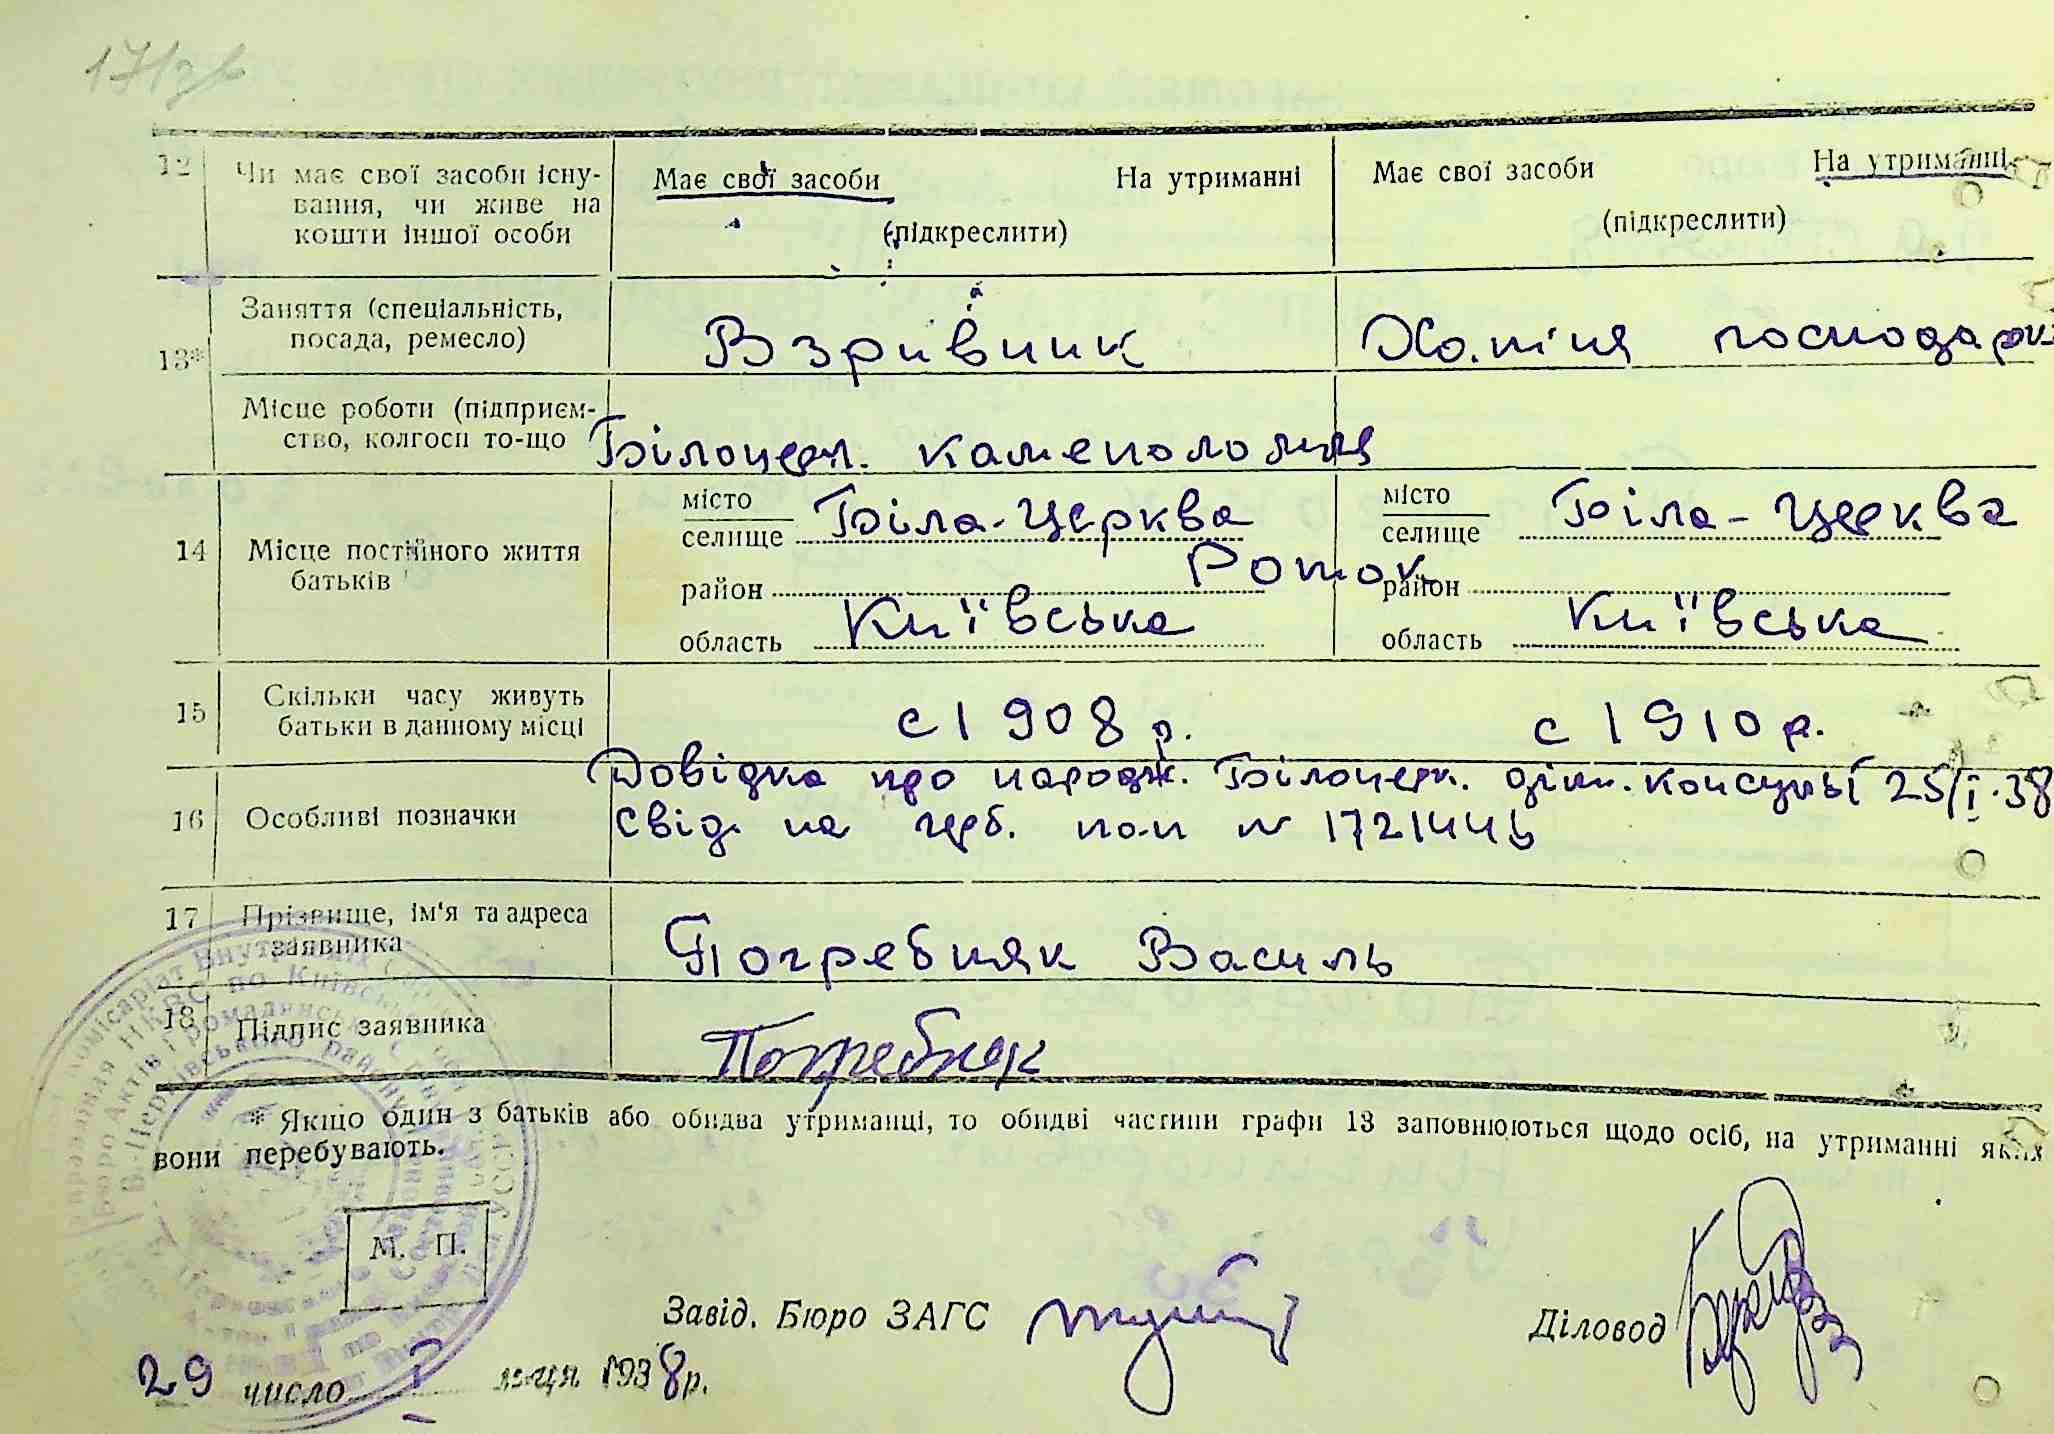 12 Чи має свої засоби існу-
вання, чи живе на
кошти іншої особи
Має свої засоби На утриманні
(підкреслити)
Має свої засоби На утриманні
(підкреслити)
13* Заняття (спеціальність,
посада, ремесло)
Взривник
Хатня господарк
Місце роботи (підприєм-
ство, колгосп то-що
Білоцерк. каменоломня
14 Місце постійного життя
батьків
місто
селище Біла-Церква
район Роток
область Київська
місто
селище Біла-Церква
район
область Київська
15 Скільки часу живуть
батьки в данному місці
с 1908 р.
с 1910 р.
16 Особливі позначки
Довідка про народж. Білоцерк. консульт 25/I.38
Свід. на 1721446
17 Прізвище, ім'я та адреса
заявника
Погребняк Василь
18 Підпис заявника
Погребняк
* Якщо один з батьків або обидва утриманці, то обидві частини графи 13 заповнюються щодо осіб, на утриманні яких
вони перебувають.
М. П.
Завід. Бюро ЗАГС
Діловод
29 число I м-ця 1938 р.